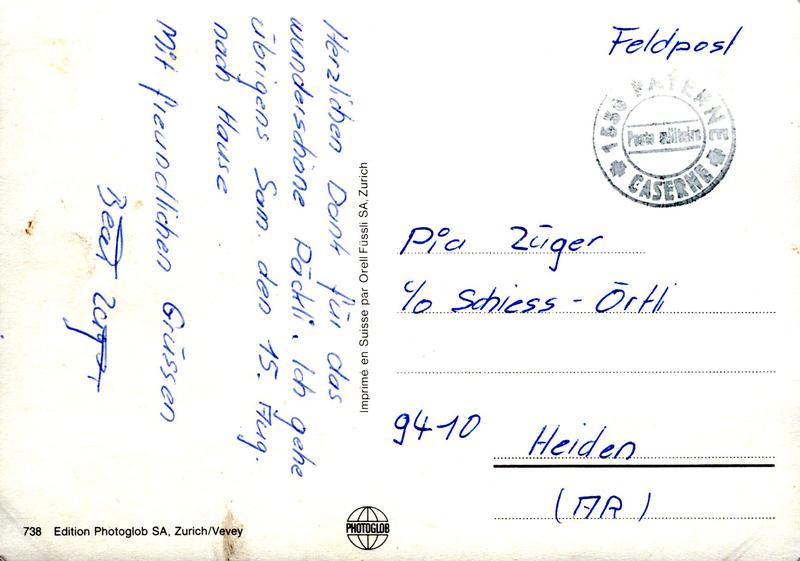 Herzlichen Dank für das
wunderschöne Päckli. Ich gehe
übrigens Sam. den 15. Aug.
nach Hause
Mit freundlichen Grüssen
Beat
Feldpost
1530 PAYERNE
Poste militaire
CASERNE
Pia Züger
c/o Schiess - Örtli
9410 Heiden
(AR)
Imprimé en Suisse par Orell Füssli SA, Zurich
738 Edition Photoglob SA, Zurich/Vevey
PHOTOGLOB